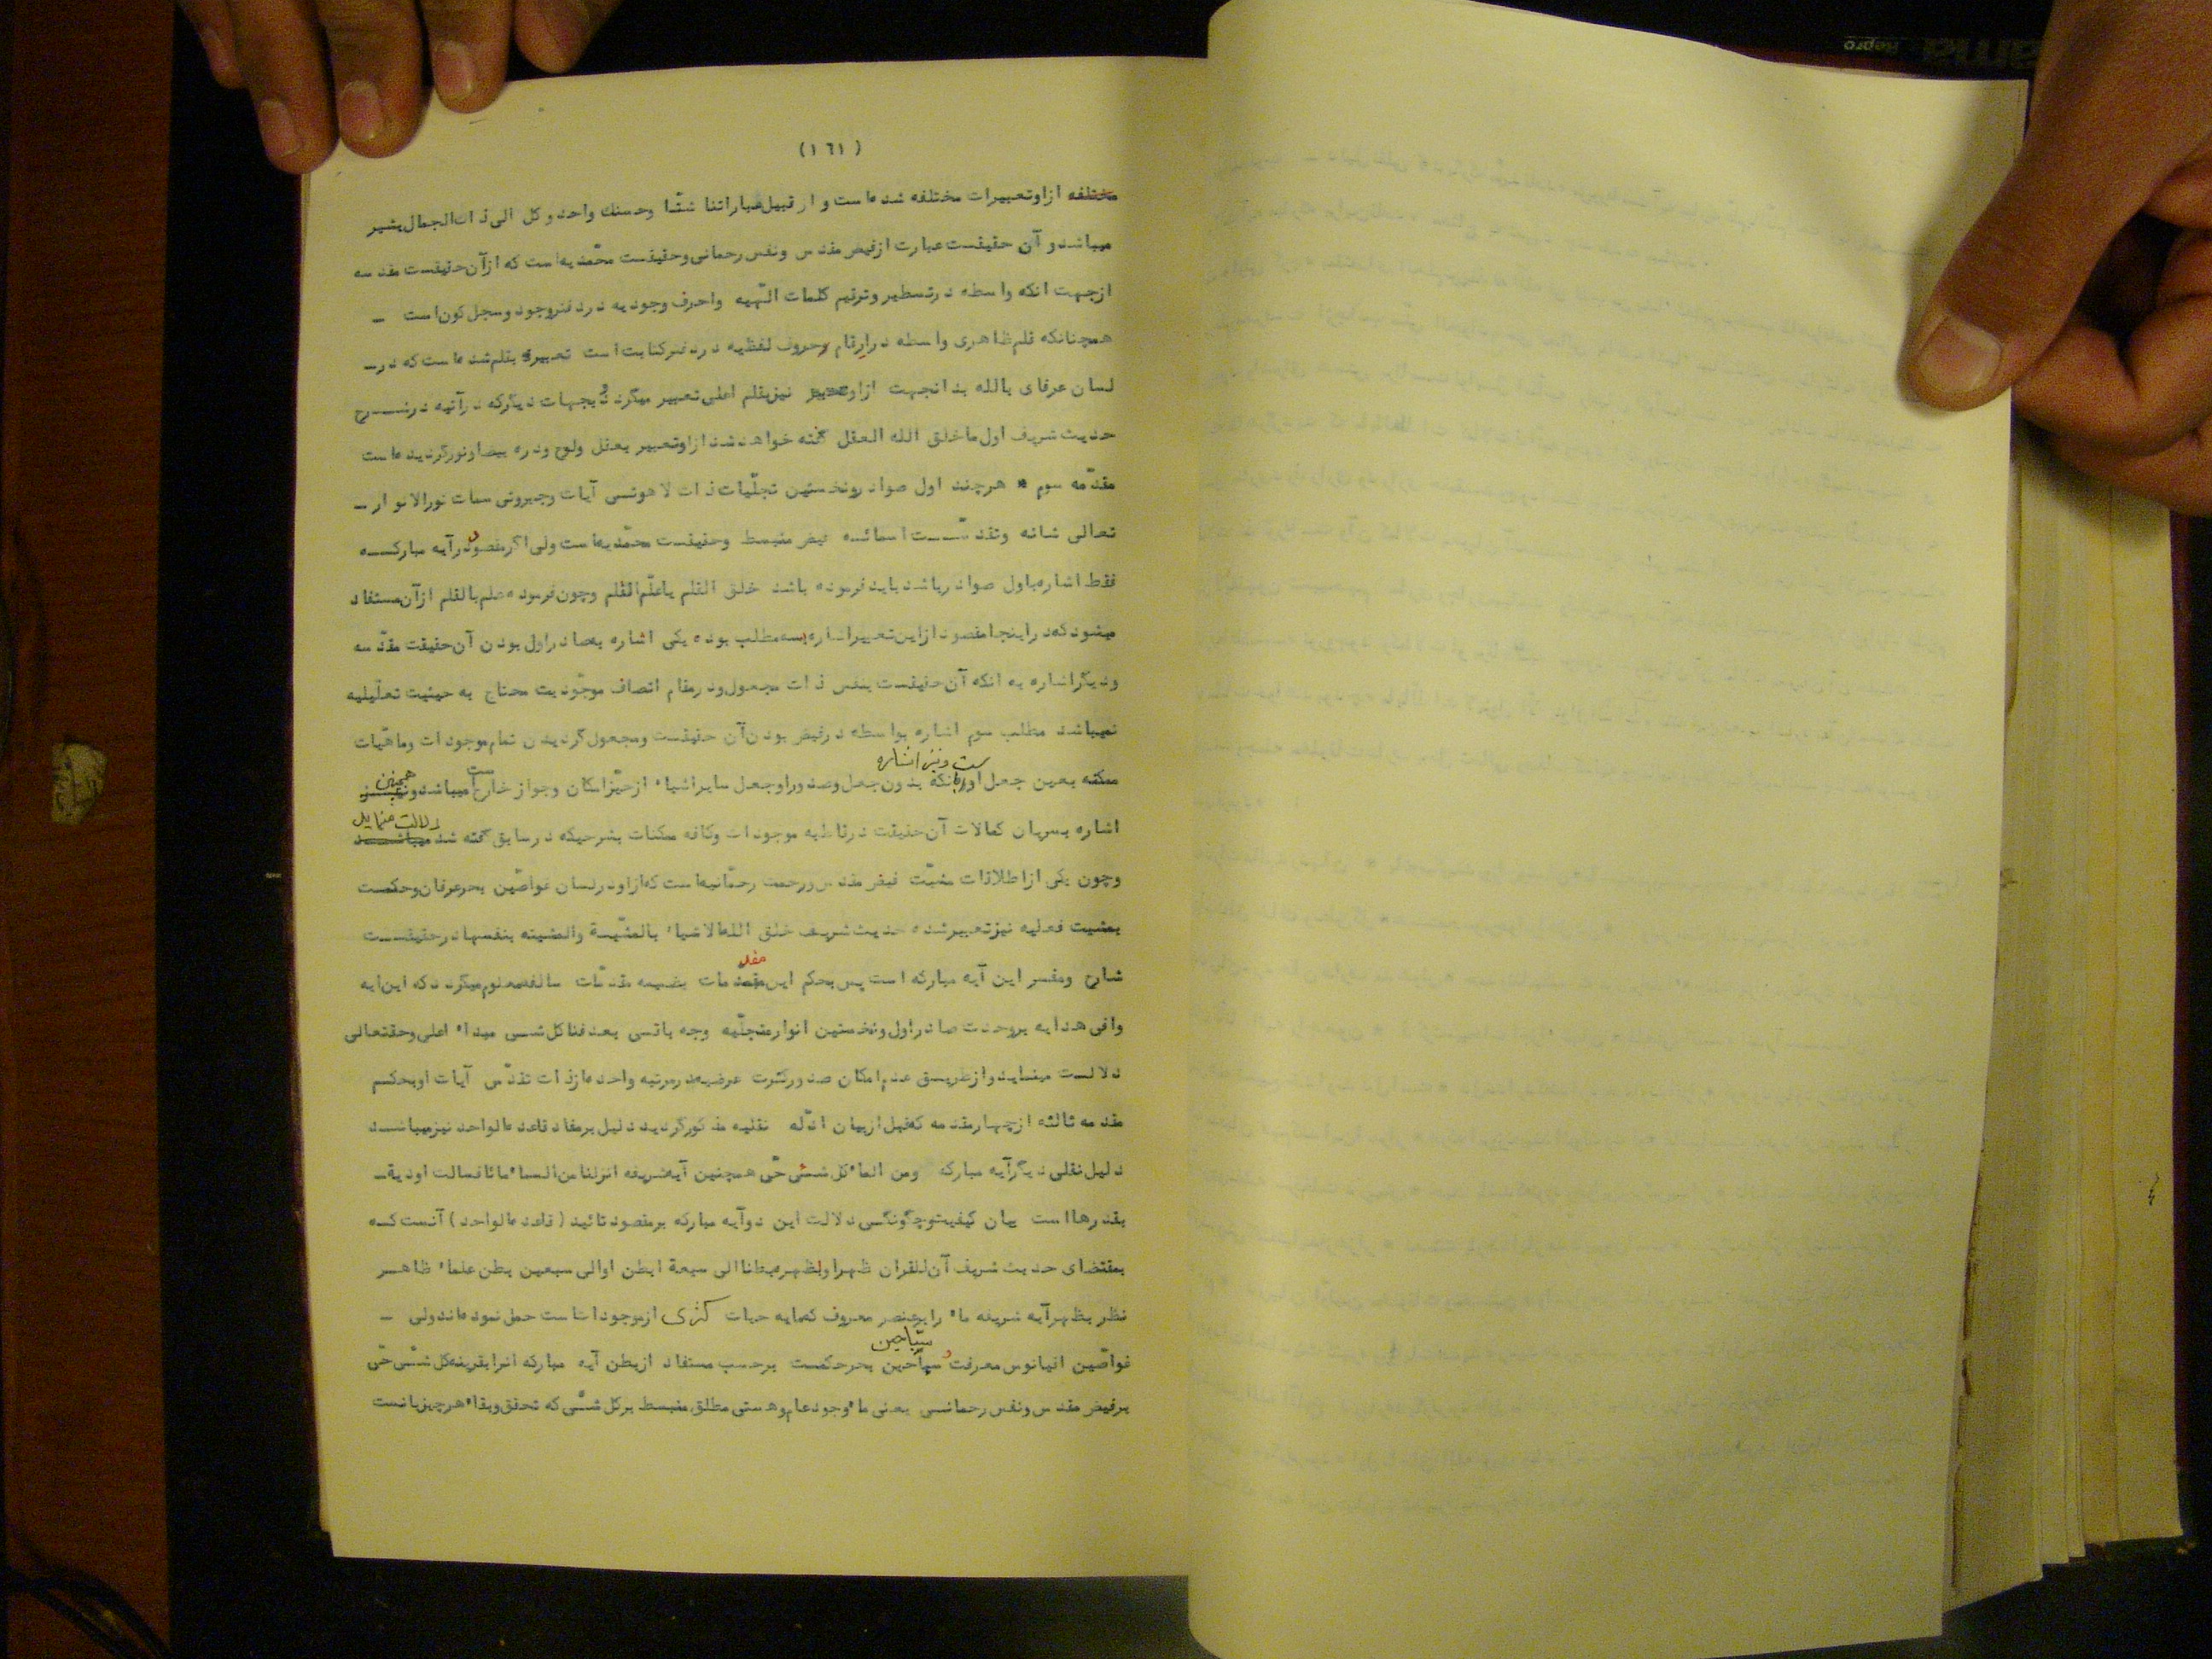 (١٦١)
مختلفه ازاوتعبیرات مختلفه شده است و از قبیل عباراتنا شتّا وحسنك واحد و کل الی ذات الجمال یشیر
میباشد و آن حقیقت عبارت ازفیض مقدس ونفس رحمانی وحقیقت محمّدیه است که ازآن حقیقت مقدسه
ازجهت انکه واسطه درتسطیر وترقیم کلمات الٰهیه واحرف وجودیه دردفتروجود وسجل کون است –
همچنانکه قلم ظاهری واسطه درارقام وحروف لفظیه دردفترکتابت است تعبیر بقلم شده است که در–
لسان عرفای بالله بدانجهت ازاو نیزبقلم اعلی تعبیر میگردد وبجهات دیگرکه درآتیه درشرح
حدیث شریف اول ماخلق الله العقل گفته خواهدشد ازاوتعبیر بعقل ولوح ودره بیضاونورگردیده است
مقدّمه سوم * هرچند اول صوادر ونخستین تجلّیات ذات لاهوتی آیات وجبروتی سمات نورالانوار –
تعالی شانه وتقدّست اسمائه فیض منبسط وحقیقت محمّدیه است ولی اگرمقصود درآیه مبارکه
فقط اشاره باول صوادرباشد باید فرموده باشد خلق القلم یاعلّم القلم وچون فرموده علم بالقلم ازآن مستفاد
میشود که دراینجا مقصود ازاین تعبیراشاره بسه مطلب بوده یکی اشاره بصادراول بودن آن حقیقت مقدّسه
ودیگراشاره به انکه آن حقیقت بنفس ذات مجعول ودرمقام اتصاف موجودیت محتاج به حیثیت تعلیلیه
نمیباشد مطلب سوم اشاره بواسطه درفیض بودن آن حقیقت ومجعول گردیدن تمام موجودات وماهیّات
ست و نیز اشاره
ممکنه بعین جعل او بانکه بدون جعل وصدوراوجعل سایراشیاء ازحیّزامکان وجواز خارج ست میباشد و همچنین
اشاره بسریان کمالات آن حقیقت درقاطبه موجودات وکافه ممکنات بشرحیکه درسابق گفته شد میباشد دلالت مینماید
وچون یکی ازاطلاقات فیض مقدس ورحمت رحمّانیه است که ازاودرلسان غواصّین بحرعرفان وحکمت
بمشیت فعلیه نیزتعبیرشده حدیث شریف خلق الله الاشیاء بالمشّیة والمشیته بنفسها درحقیقت
شارح ومفسر این آیه مبارکه است پس بحکم این مقدمات بضمیمه مقدّمات سالفه معلوم میگردد که این ایه
وافی هدایه بروحدت صادراول ونخستین انوارمتجلّیه وجه باقی بعد فنا کل شیی مبداء اعلی وحقتعالی
دلالت مینماید وازطریق عدم امکان صدورکثرت عرضیه درمرتبه واحده ازذات تقدّس آیات اوبحکم
مقدمه ثالثه ازچهارمقدمه که قبل ازبیان ادّله نقلیه مذکورگردید دلیل برمفاد قاعده الواحد نیزمیباشد
دلیل نقلی دیگرآیه مبارکه ومن الماء کل شیئی حّی همچنین آیه شریفه انزلنا من السماء مائا فسالت اودیة–
بقدرهااست بیان کیفیت وچگونگی دلالت این دوآیه مبارکه برمقصود تائید (قاعده الواحد) آنست که
بمقتضای حدیث شریف آن للقران ظهرا ولظهره بطنا الی سبعة ابطن اوالی سبعین بطن علماء ظاهر
نظر بظهرآیه شریفه ماء را برعنصر معروف که مایه حیات کثری ازموجودات است حمل نموده اندولی –
سبّاحین
غواصّین اقیانوس معرفت و سیاحین بحرحکمت برحسب مستفاد ازبطن آیه مبارکه انرا بقرینه کل شیّی حّی
برفیض مقدس ونفس رحمانی یعنی ماء وجودعام وهستی مطلق منبسط برکل شیّی که تحقق وبقاء هرچیزبانست